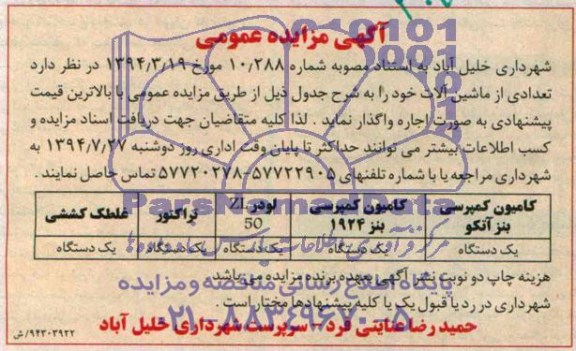 آگهی مزایده عمومی
شهرداری خلیل آباد به استناد مصوبه شماره ۱۰٫۲۸۸ مورخ ۱۳۹۴/۳/۱۹ در نظر دارد
تعدادی از ماشین آلات خود را به شرح جدول ذیل از طریق مزایده عمومی با بالاترین قیمت
پیشنهادی به صورت اجاره واگذار نماید . لذا کلیه متقاضیان جهت دریافت اسناد مزایده و
کسب اطلاعات بیشتر می توانند حداکثر تا پایان وقت اداری روز دوشنبه ۱۳۹۴/۷/۲۷ به
شهرداری مراجعه یا با شماره تلفنهای ۵۷۷۲۲۹۰۵-۵۷۷۲۰۲۷۸ تماس حاصل نمایند .
کامیون کمپرسی بنز آتکو کامیون کمپرسی بنز ۱۹۲۴ لودر ZL 50 تراکتور غلطک کششی
یک دستگاه یک دستگاه یک دستگاه یک دستگاه یک دستگاه
هزینه چاپ دو نوبت نشر آگهی بعهده برنده مزایده می باشد.
شهرداری در رد یا قبول یک یا کلیه پیشنهادها مختار است .
حمید رضا عنایتی فرد - سرپرست شهرداری خلیل آباد
۹۴۳۰۳۹۲۲/ش
ParsNamadData
پایگاه اطلاع رسانی مناقصه و مزایده
۰۲۱-۸۸۳۴۹۶۷۰-۵